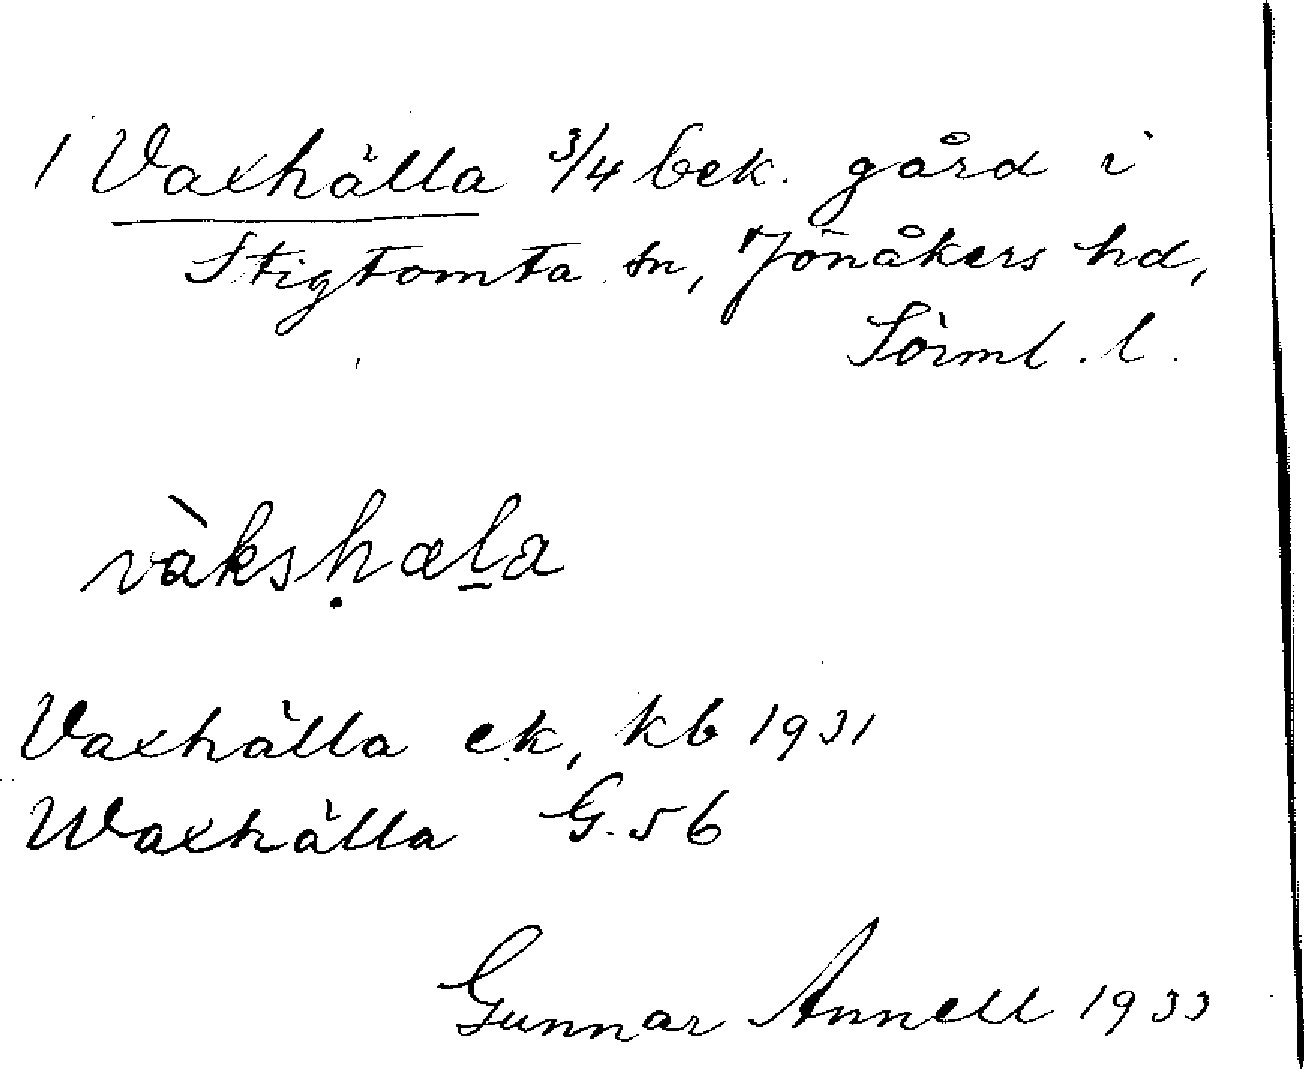 1 Vaxhälla 3/4 bek. gård i
Stigtomta sn, Jönåkers hd,
Sörml. l.
vàksḥæl̠a
Vaxhälla ek, kb 1931
Waxhälla G. 56
Gunnar Annell 1933